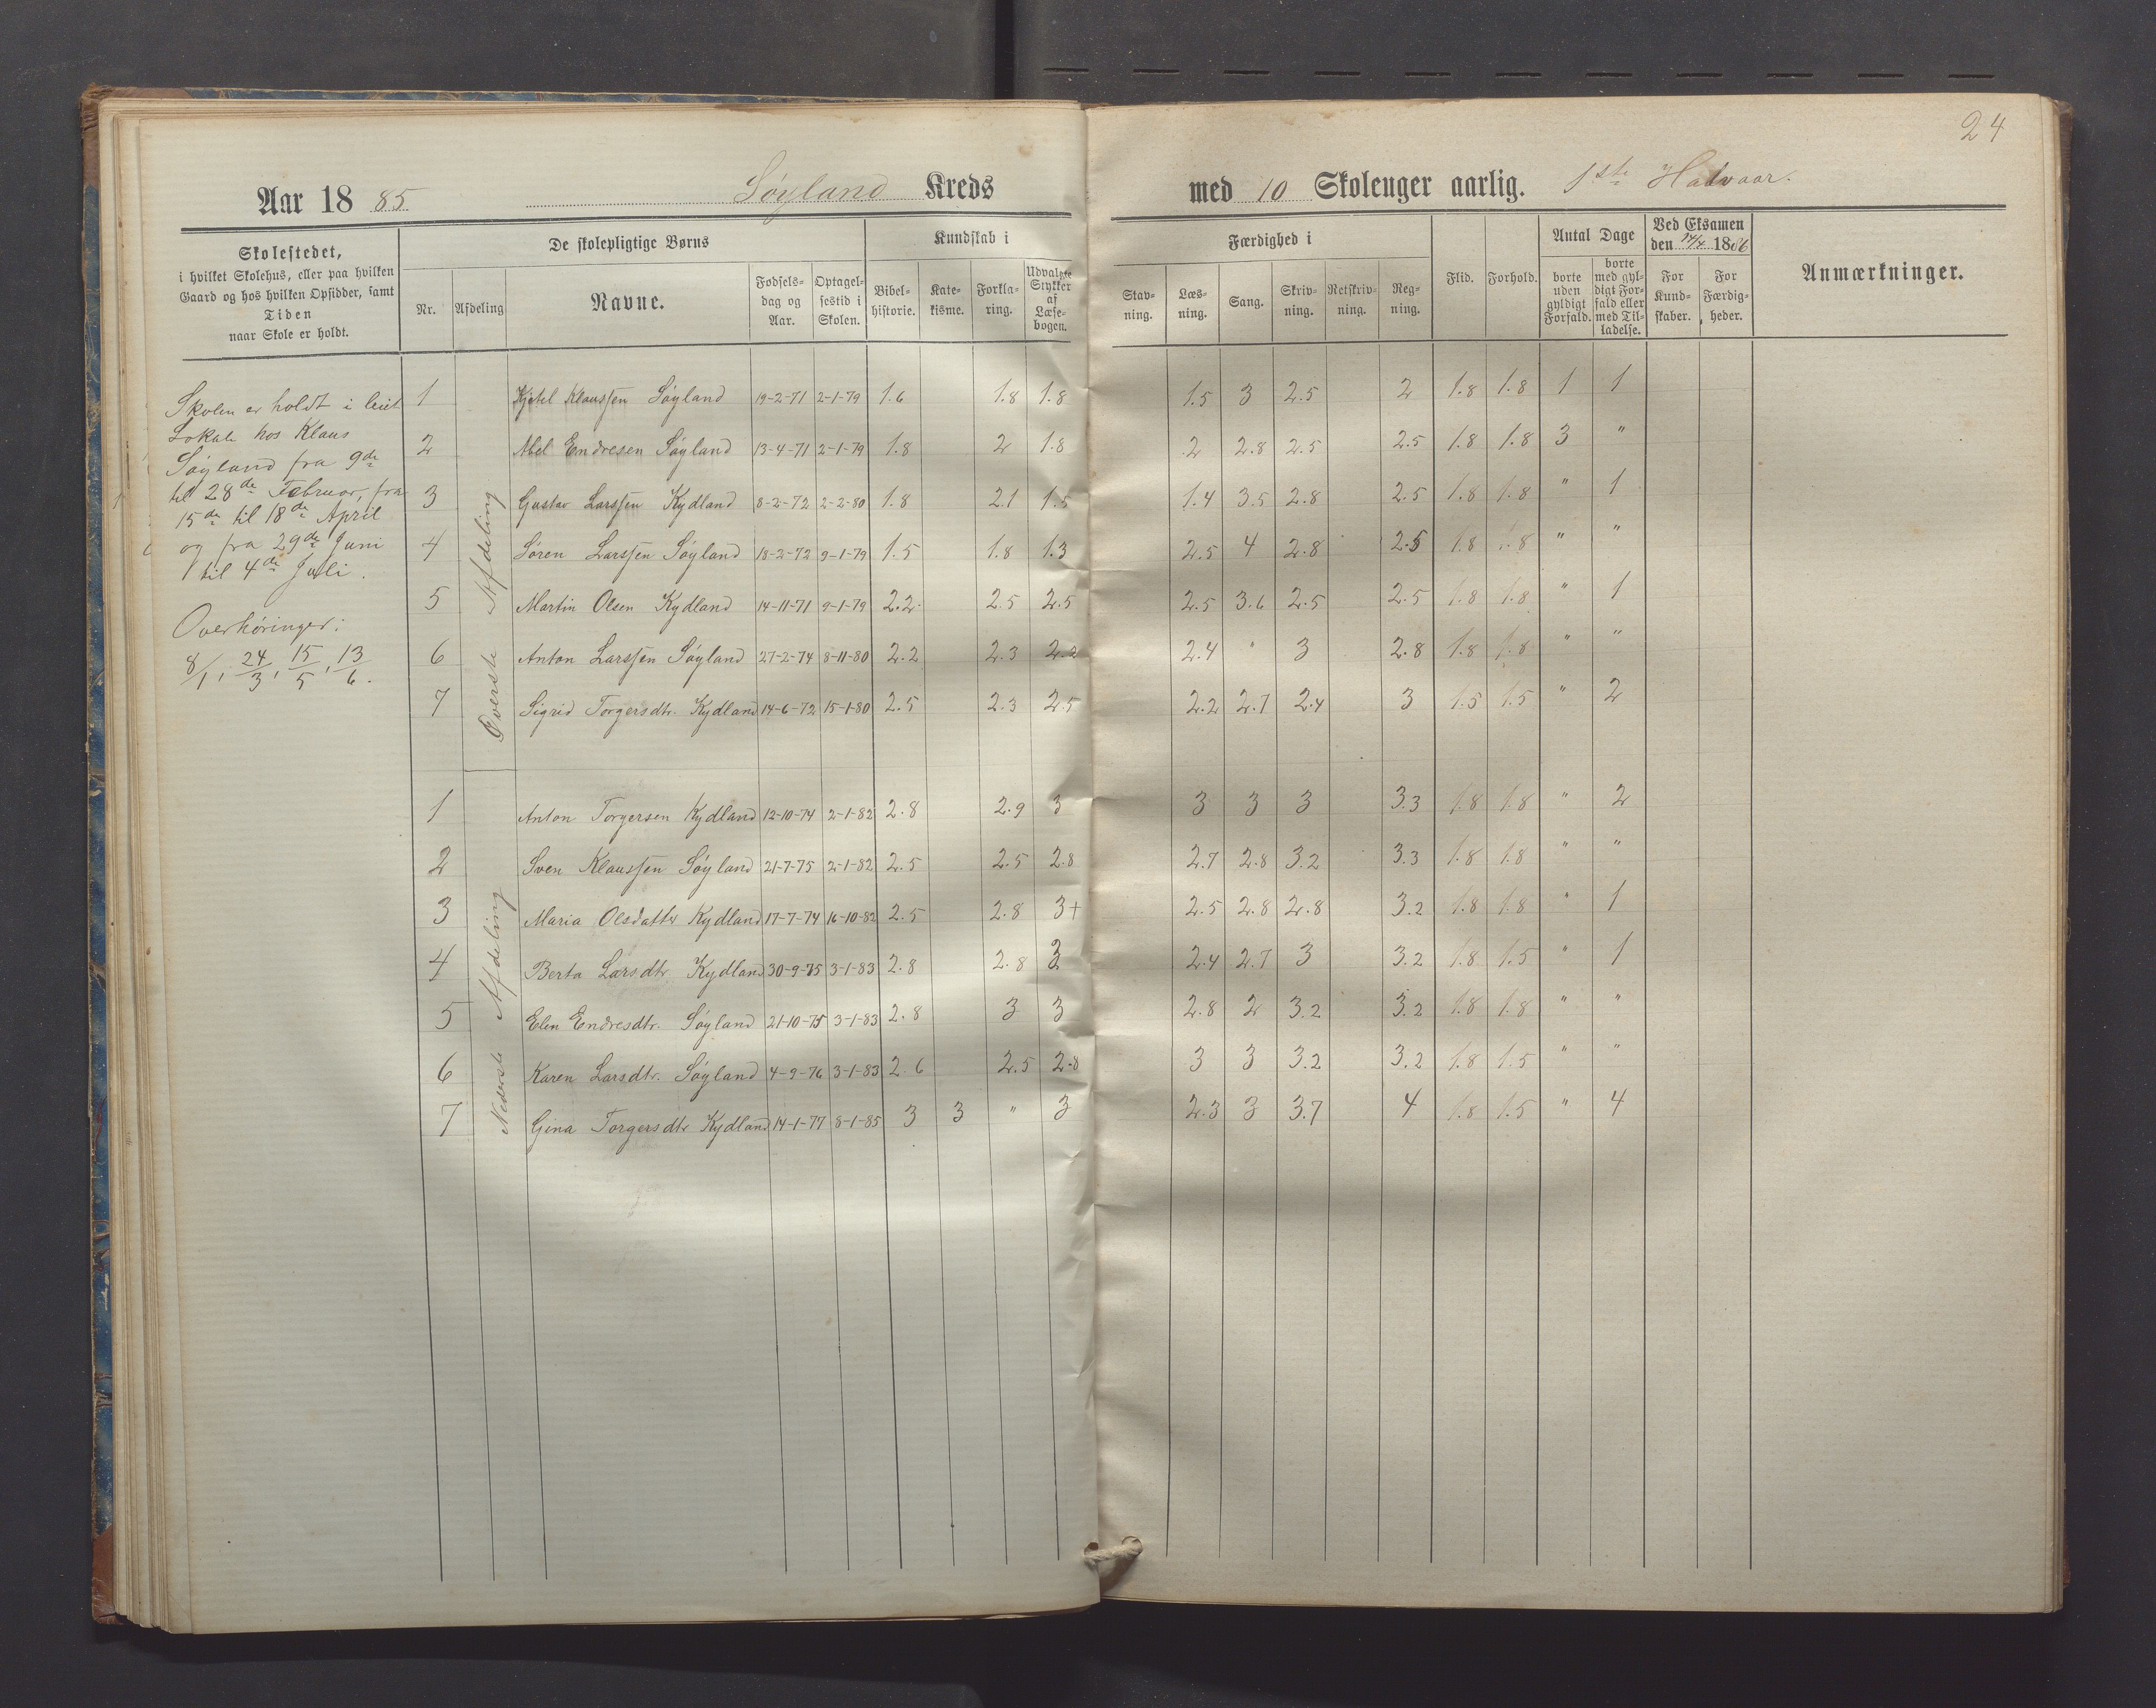 24
Aar 1885 Søyland Kreds med 10 Skoleuger aarlig. 1ste Halvaar.
Skolestedet,
i hvilket Skolehus, eller paa hvilken
Gaard og hos hvilken Opsidder, samt
Tiden
naar Skole er holdt.
De skolepligtige Børns
Nr. Afdeling Navne. Fødsels-dag og Aar. Optagel-sestid i Skolen.
Kundskab i
Bibel-historie. Kate-kisme. Forkla-ring. Udvalgte Stykker af Læse-bogen.
Færdighed i
Stav-ning. Læs-ning. Sang. Skriv-ning. Retskriv-ning. Reg-ning.
Flid. Forhold.
Antal Dage
borte uden gyldigt Forfald. borte med gyl-digt For-fald eller med Til-ladelse.
Ved Eksamen
den 14/4 1886
For Kund-skaber. For Færdig-heder.
Anmærkninger.
Skolen er holdt i leiet
Lokale hos Klaus
Søyland fra 9de
til 28de Februar, fra
15de til 18de April
og fra 29de Juni
til 4de Juli.
Overhøringer:
8/1, 24/3, 15/5, 13/6.
Øverste Afdeling
1 Kjetel Klaussen Søyland 19-2-71 2-1-79 1.6 1.8 1.8 1.5 3 2.5 2 1.8 1.8 1 1
2 Abel Endresen Søyland 13-4-71 2-1-79 1.8 2 1.8 2 2.8 2.5 2.5 1.8 1.8 3 "
3 Gustav Larssen Kydland 8-2-72 2-2-80 1.8 2.1 1.5 1.4 3.5 2.8 2.5 1.8 1.8 " 1
4 Søren Larssen Søyland 18-2-72 9-1-79 1.5 1.8 1.3 2.5 4 2.8 2.5 1.8 1.8 " "
5 Martin Olsen Kydland 14-11-71 9-1-79 2.2 2.5 2.5 2.5 3.6 2.5 2.5 1.8 1.8 " 1
6 Anton Larssen Søyland 27-2-74 8-11-80 2.2 2.3 2.2 2.4 " 3 2.8 1.8 1.8 " "
7 Sigrid Torgersdtr. Kydland 14-6-72 15-1-80 2.5 2.3 2.5 2.2 2.7 2.4 3 1.5 1.5 " 2
Nederste Afdeling
1 Anton Torgersen Kydland 12-10-74 2-1-82 2.8 2.9 3 3 3 3 3.3 1.8 1.8 " 2
2 Sven Klaussen Søyland 21-7-75 2-1-82 2.5 2.5 2.8 2.7 2.8 3.2 3.3 1.8 1.8 " "
3 Maria Olsdatter Kydland 17-7-74 16-10-82 2.5 2.8 3+ 2.5 2.8 2.8 3.2 1.8 1.8 " 1
4 Berta Larsdtr. Kydland 30-9-75 3-1-83 2.8 2.8 3 2.4 2.7 3 3.2 1.8 1.5 " 1
5 Elen Endresdtr. Søyland 21-10-75 3-1-83 2.8 3 3 2.8 2 3.2 3.2 1.8 1.8 " "
6 Karen Larsdtr. Søyland 4-9-76 3-1-83 2.6 2.5 2.8 3 3 3.2 3.2 1.8 1.5 " "
7 Gina Torgersdtr Kydland 14-1-77 8-1-85 3 3 " 3 2.3 3 3.7 4 1.8 1.5 " 4